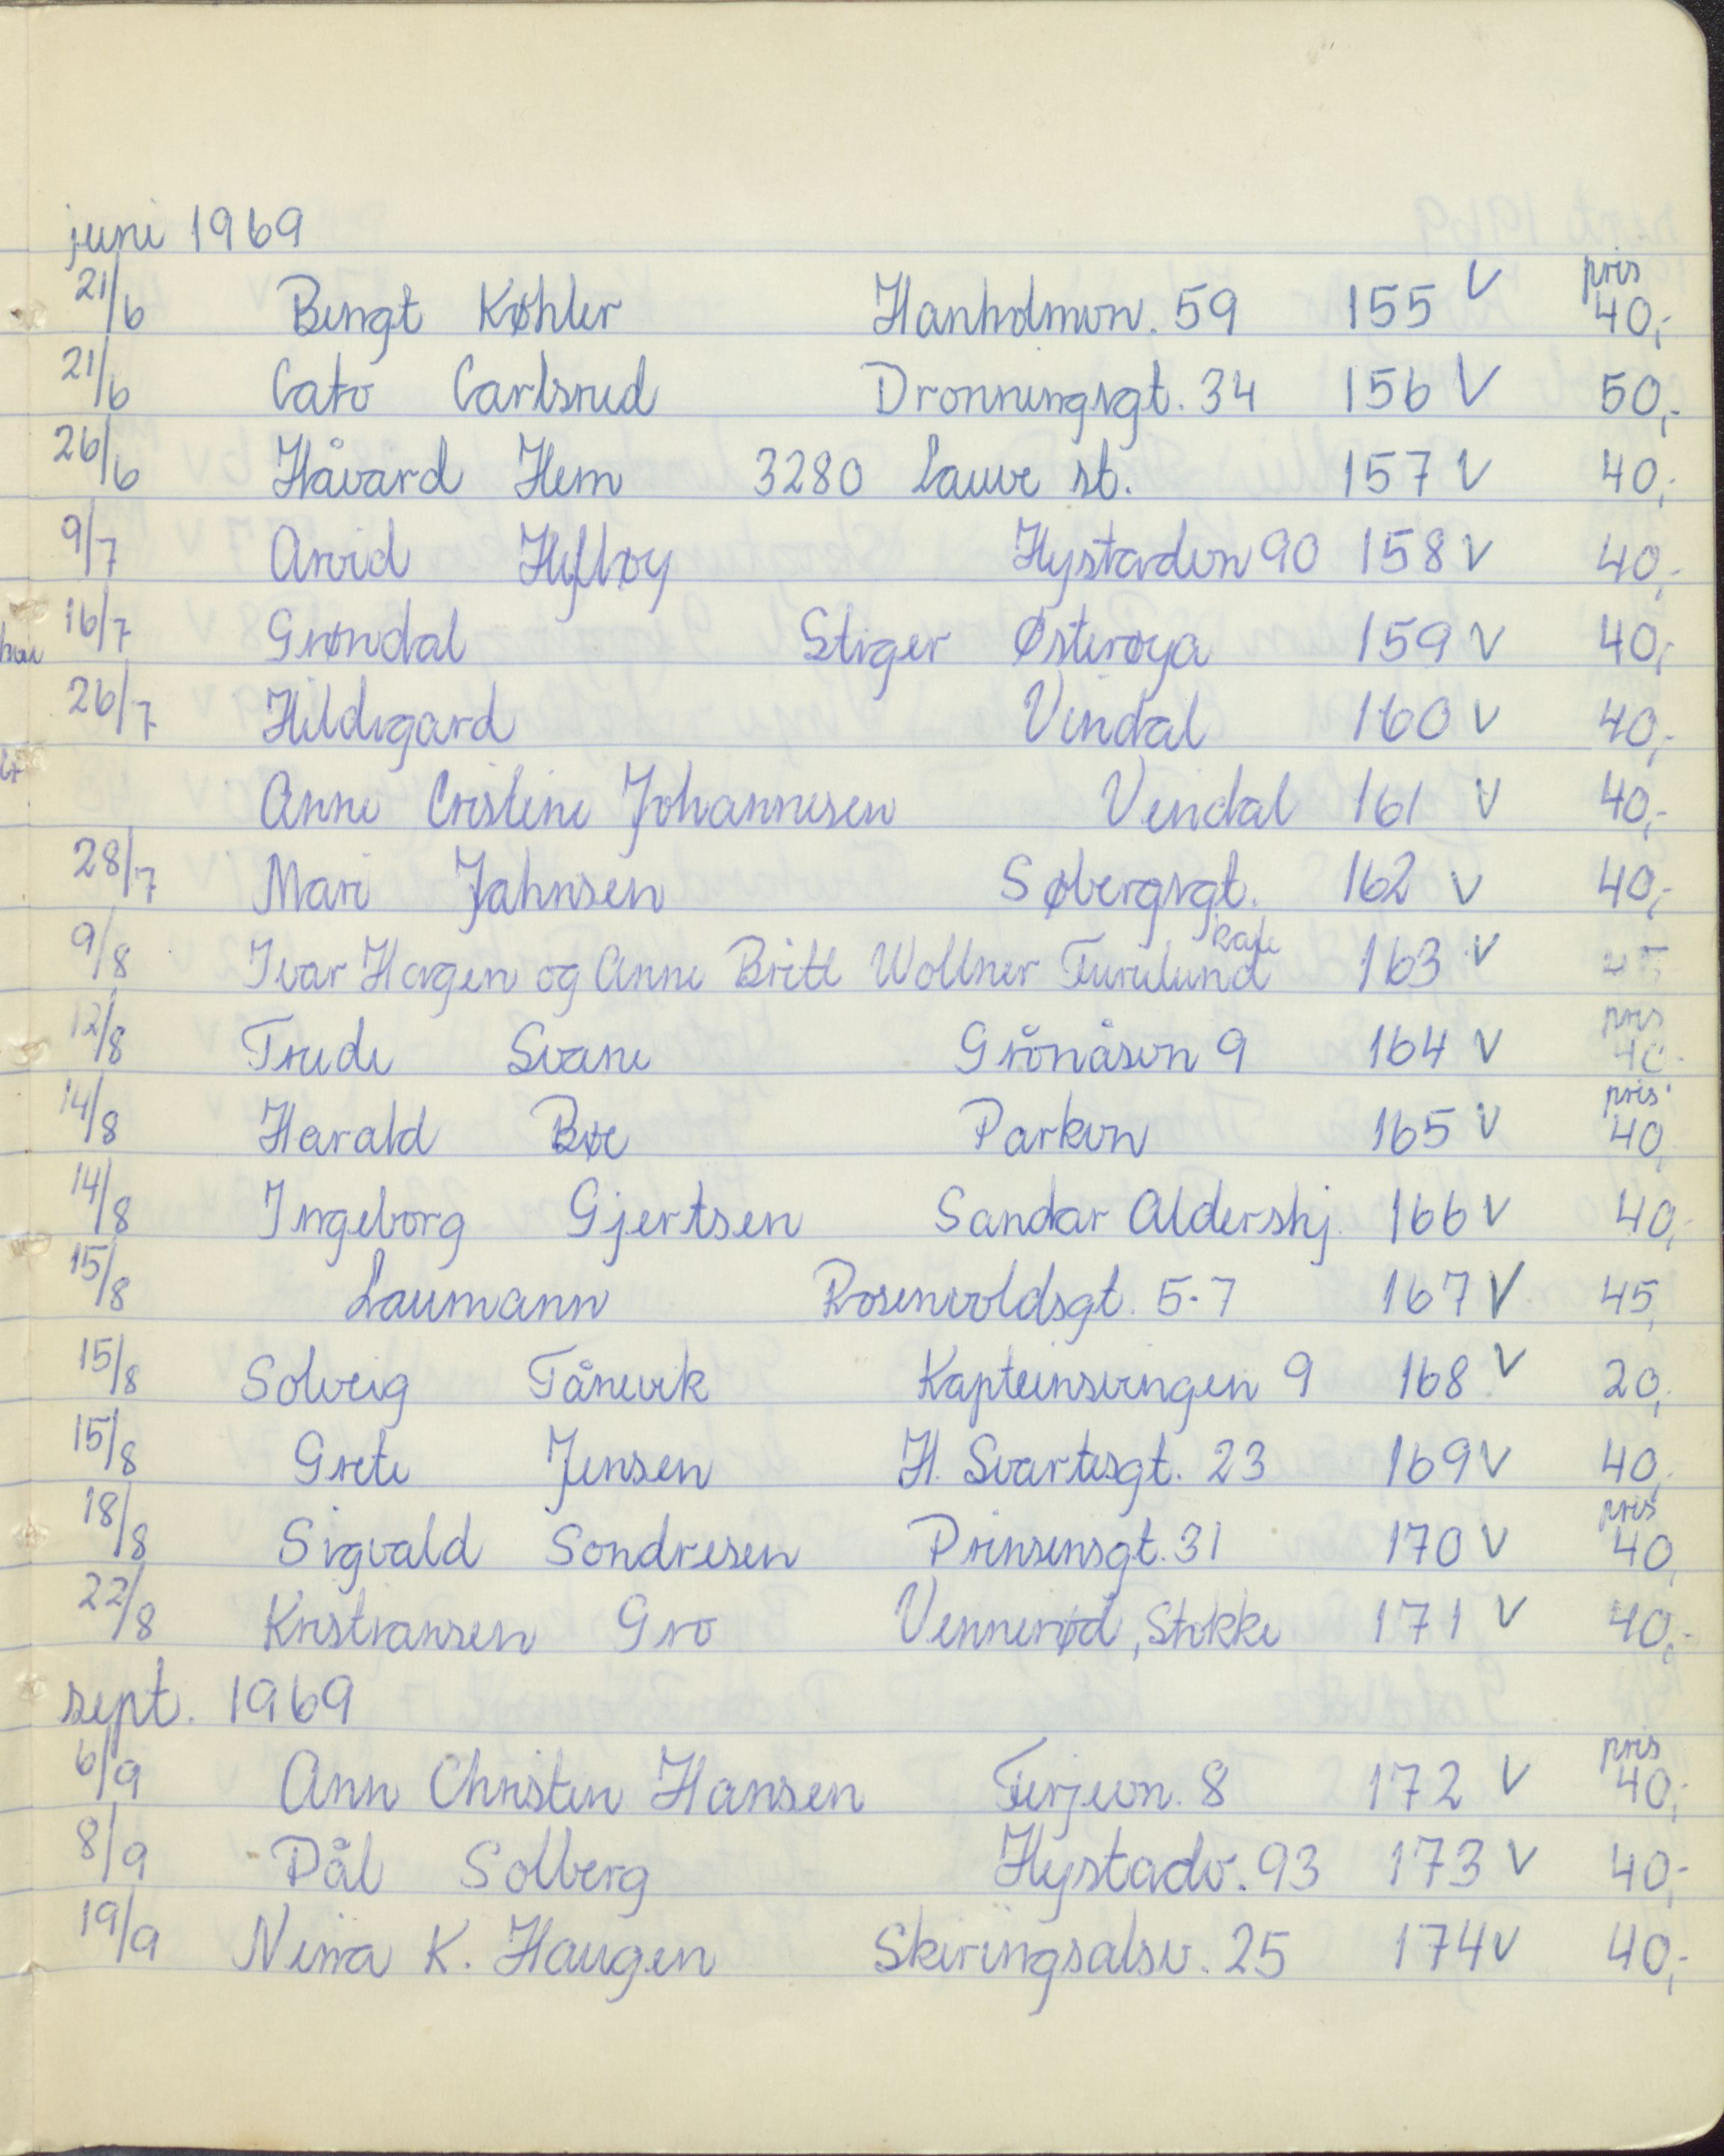 juni 1969
21/6 Bengt Køhler Hanholmvn. 59 155 V pris 40,-
21/6 Cato Carlsrud Dronningsgt. 34 156 V 50,-
26/6 Håvard Hem 3280 Lauve st. 157 V 40,-
9/7 Arvid Hystadvn 90 158 V 40,-
16/7 Grøndal Stiger Østerøya 159 V 40,-
26/7 Hildegard Vindal 160 V 40,-
Anne Cristine Johannesen Vindal 161 V 40,-
28/7 Mari Jahnsen Søbergsgt. 162 V 40,-
9/8 Ivar Hagen og Anne Britt Wollner Furulund kafe 163 V
12/8 Trude Svane Grønåsvn 9 164 V pris 40
14/8 Harald Bøe Parkvn 165 V pris 40,
14/8 Ingeborg Gjertsen Sandar Aldershj. 166 V 40,-
15/8 Laumann Rosenvoldsgt. 5-7 167 V 45,
15/8 Solveig Tånevik Kapteinsvingen 9 168 V 20,
15/8 Grete Jensen H. Svartesgt. 23 169 V 40,
18/8 Sigvald Sondresen Prinsensgt. 31 170 V pris 40,
22/8 Kristiansen Gro Vennerød, Stokke 171 V 40,-
sept. 1969
6/9 Ann Christin Hansen Terjevn. 8 172 V pris 40,-
8/9 Pål Solberg Hystadv. 93 173 V 40,-
19/9 Nina K. Haugen Skiringsalsv. 25 174 V 40,-